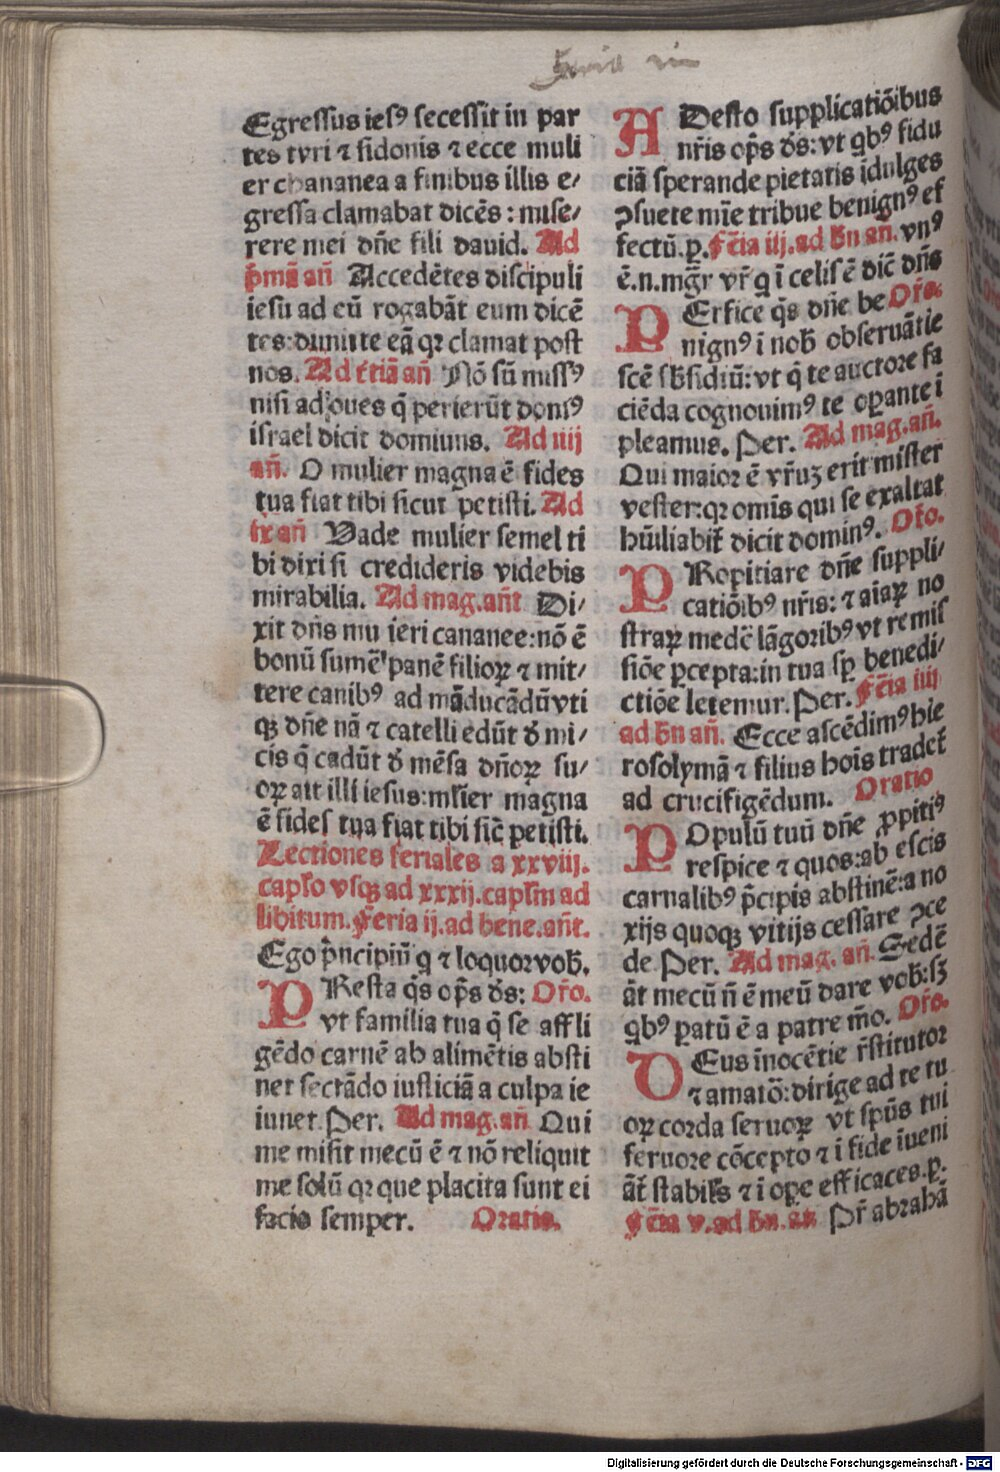 Egressus iesꝰ secessit in par
tes tyri ⁊ sidonis ⁊ ecce muli
er chananea a finibus illis e/
gressa clamabat dicēs: mise/
rere mei dñe fili dauid. Ad
p̄mā añ Accedētes discipuli
iesu ad eū rogabāt eum dicē
tes: dimitte eā qꝛ clamat post
nos. Ad t̄tiā añ Nō sū missꝰ
nisi ad oues q̄ perierūt domꝰ
israel dicit dominus. Ad iiij
añ. O mulier magna ē fides
tua fiat tibi sicut petisti. Ad
ix añ Vade mulier semel ti
bi dixi si credideris videbis
mirabilia. Ad mag. añt Di/
xit dñs mulieri cananee: nō ē
bonū sumē panē filioꝝ ⁊ mit/
tere canibꝰ ad māducādū vti
qꝫ dñe nā ⁊ catelli edūt d̄ mi/
cis q̄ cadūt d̄ mēsa dñoꝝ su/
oꝝ ait illi iesus: ml̄ier magna
ē fides tua fiat tibi sic̄ petisti.
Lectiones feriales a xxviij.
capl̄o vsqꝫ ad xxxij. capl̄m ad
libitum. Fēria ij. ad bene. añt.
Ego p̄ncipiū q̄ ⁊ loquor vob̄.
PResta q̄s op̄s d̄s: Or̄o.
vt familia tua q̄ se affli
gēdo carnē ab alimētis absti
net sectādo iusticiā a culpa ie
iunet. Per. Ad mag. añ Qui
me misit mecū ē ⁊ nō reliquit
me solū qꝛ que placita sunt ei
facio semper. Oratio.
Feria iii
ADesto supplicatiōibus
nr̄is op̄s d̄s: vt qbꝰ fidu
ciā sperande pietatis īdulges
ꝯsuete mīe tribue benignꝰ ef
fectū. p. Fēia iij. ad b̄n añ. vnꝰ
ē. n. mḡr vr̄ q ī celis ē dic̄ dñs
PErfice q̄s dñe be Or̄o.
nignꝰ ī nob̄ obseruātie
scē sb̄sidiū: vt q̄ te auctore fa
ciēda cognouimꝰ te oꝑante ī
pleamus. Per. Ad mag. añ.
Qui maior ē vr̄uꝫ erit mister
vester: qꝛ omīs qui se exaltat
hūiliabit̄ dicit dominꝰ. Or̄o.
PRopitiare dñe suppli/
catiōibꝰ nr̄is: ⁊ aiaꝝ no
straꝝ medē lāgoribꝰ vt remis
siōe ꝑcepta: in tua sꝑ benedi/
ctiōe letemur. Per. Fēia iiij
ad b̄n añ. Ecce ascēdimꝰ hie
rosolymā ⁊ filius hoīs tradet̄
ad crucifigēdum. Oratio
POpulū tuū dñe ꝓpitiꝰ
respice ⁊ quos: ab escis
carnalibꝰ p̄cipis abstinē: a no
xijs quoqꝫ vitijs cessare ꝯce
de Per. Ad mag. añ. Sedē
āt mecū ñ ē meū dare vob̄: sꝫ
qbꝰ ꝑatū ē a patre m̄o. Or̄o.
DEus īnocētie r̄stitutor
⁊ amatō: dirige ad te tu
oꝝ corda seruoꝝ vt sp̄us tui
feruore cōcepto ⁊ ī fide īueni
āt̄ stabil̄s ⁊ ī oꝑe efficaces. p.
Fēia v. ad b̄n. añ Pr̄ abrahā
Digitalisierung gefördert durch die Deutsche Forschungsgemeinschaft - DFG